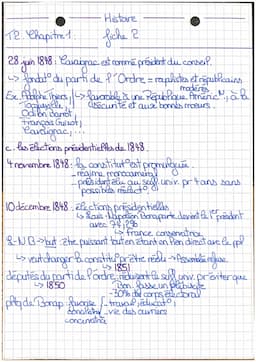 Histoire
T2 Chapitre 1. fiche 2
28 juin 1848 : Cavaignac est nommé président du conseil.
↳ fondat° du parti de l'Ordre = royalistes et républicains
modérés
Ex: Adolph Thiers, ↳ favorable à une République, à la
Tocqueville, sécurité et aux bonnes mœurs.
Odilon Barrot,
François Guizot,
Cavaignac, ...
c. les élections présidentielles de 1848.
4 novembre 1848 : la constitut° est promulguée.
- régime monocaméral
- président élu au suff univ. pr 4 ans sans
possibilité réélect°
10 décembre 1848 : élections présidentielles
↳ Louis-Napoléon Bonaparte devient le 1er président
avec 74,2%
↳ France conservatrice
L-N B → but : être puissant tout en étant en lien direct avec le ppl
↳ veut changer la constitut° pr être réélu → Assemblée refuse
↳ 1851
députés du parti de l'Ordre réduisent le suff univ. pr éviter que
↳ 1850 Bon. fasse un plébiscite
- 30% du corps électoral
Bonap. favorise